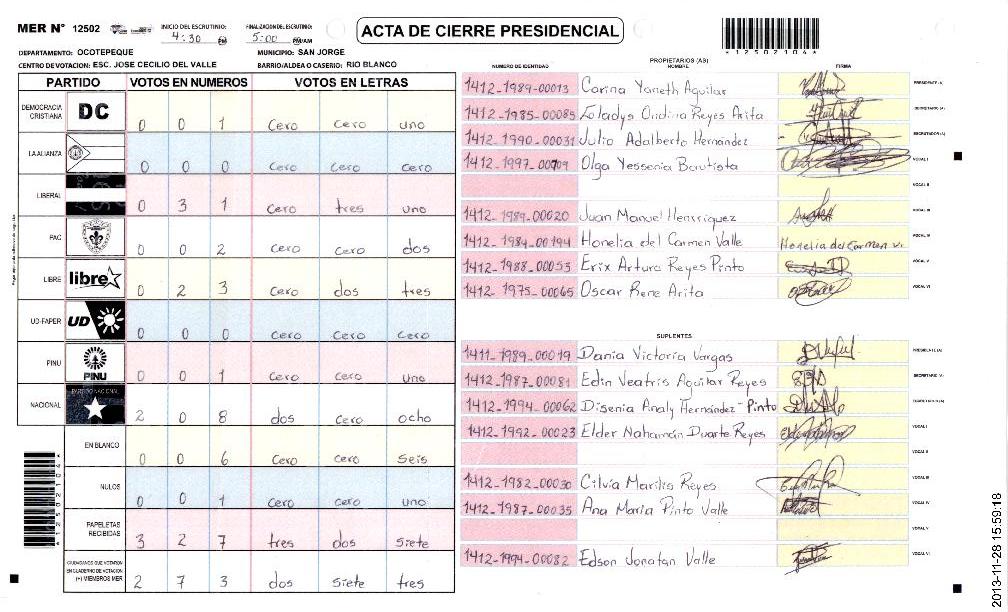 MER N° 12502
INICIO DEL ESCRUTINIO:
4:30 PM
FINALIZACION DEL ESCRUTINIO:
5:00 PM/AM
ACTA DE CIERRE PRESIDENCIAL
*12502104*
DEPARTAMENTO: OCOTEPEQUE
MUNICIPIO: SAN JORGE
CENTRO DE VOTACION: ESC. JOSE CECILIO DEL VALLE
BARRIO/ALDEA O CASERIO: RIO BLANCO
PARTIDO VOTOS EN NUMEROS VOTOS EN LETRAS
DEMOCRACIA CRISTIANA DC 0 0 1 cero cero uno
LA ALIANZA 0 0 0 cero cero cero
LIBERAL 0 3 1 cero tres uno
PAC 0 0 2 cero cero dos
LIBRE libre 0 2 3 cero dos tres
UD-FAPER UD 0 0 0 cero cero cero
PINU PINU 0 0 1 cero cero uno
NACIONAL PARTIDO NACIONAL 2 0 8 dos cero ocho
EN BLANCO 0 0 6 cero cero seis
NULOS 0 0 1 cero cero uno
PAPELETAS RECIBIDAS 3 2 7 tres dos siete
CIUDADANOS QUE VOTARON EN CUADERNO DE VOTACION (+) MIEMBROS MER 2 7 3 dos siete tres
PROPIETARIOS (AS)
NUMERO DE IDENTIDAD NOMBRE FIRMA
1412-1989-00013 Carina Yaneth Aguilar PRESIDENTE (A)
1412-1985-00085 Eoladys Ondina Reyes Arita SECRETARIO (A)
1412-1990-00031 Julio Adalberto Hernández ESCRUTADOR (A)
1412-1997-00709 Olga Yessenia Bautista VOCAL I
VOCAL II
1412-1989-00020 Juan Manuel Henrriquez VOCAL III
1412-1984-00194 Honelia del Carmen Valle Honelia del Carmen V. VOCAL IV
1412-1988-00053 Erix Arturo Reyes Pinto VOCAL V
1412-1975-00065 Oscar Rene Arita VOCAL VI
SUPLENTES
1411-1989-00019 Dania Victoria Vargas PRESIDENTE (A)
1412-1987-00081 Edin Veatris Aguilar Reyes SECRETARIO (A)
1412-1994-00062 Disenia Analy Hernández Pinto ESCRUTADOR (A)
1412-1992-00023 Elder Nahamán Duarte Reyes VOCAL I
VOCAL II
1412-1982-00030 Cilvia Marilis Reyes VOCAL III
1412-1987-00035 Ana Maria Pinto Valle VOCAL IV
VOCAL V
1412-1994-00082 Edson Jonatan Valle VOCAL VI
*12502104*
2013-11-28 15:59:18